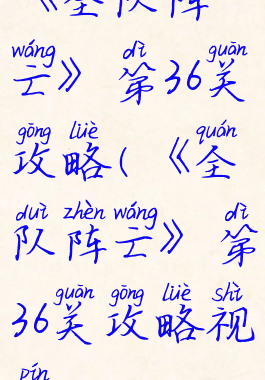 《全队阵
wáng dì guān
亡》 第36关
gōng lüè quán
攻略( 《全
duì zhèn wáng dì
队阵亡》 第
guān gōng lüè shì
36关攻略视
pín